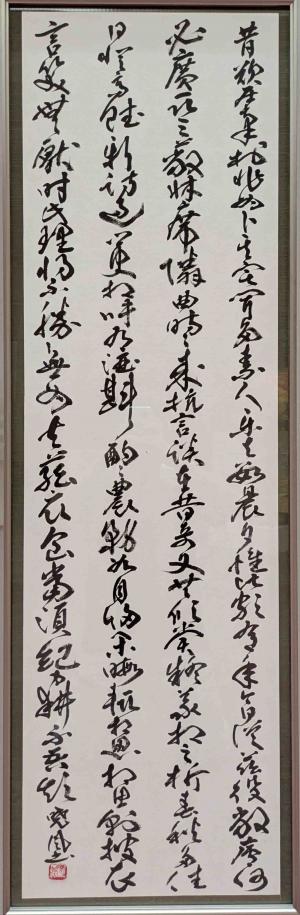 昔欲居南村非為卜其宅聞多素心人樂與數晨夕懷此頗有年今日從茲役敝廬何
必廣取足蔽牀席鄰曲時々來抗言談在昔奇文共欣賞疑義相與析春秋多佳
日登高賦新詩過門更相呼有酒斟酌之農務各自歸閒暇輒相思相思則披衣
言笑無厭時此理將不勝無為忽去茲衣食當須紀力耕不吾欺